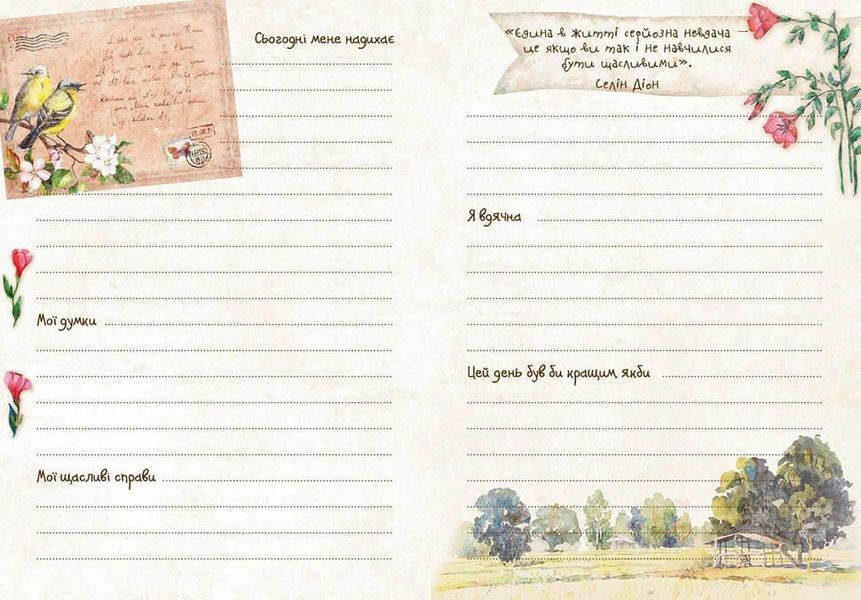 Сьогодні мене надихає
Мої думки
Мої щасливі справи
«Єдина в житті серйозна невдача —
це якщо ви так і не навчилися
бути щасливими».
Селін Діон
Я вдячна
Цей день був би кращим, якби